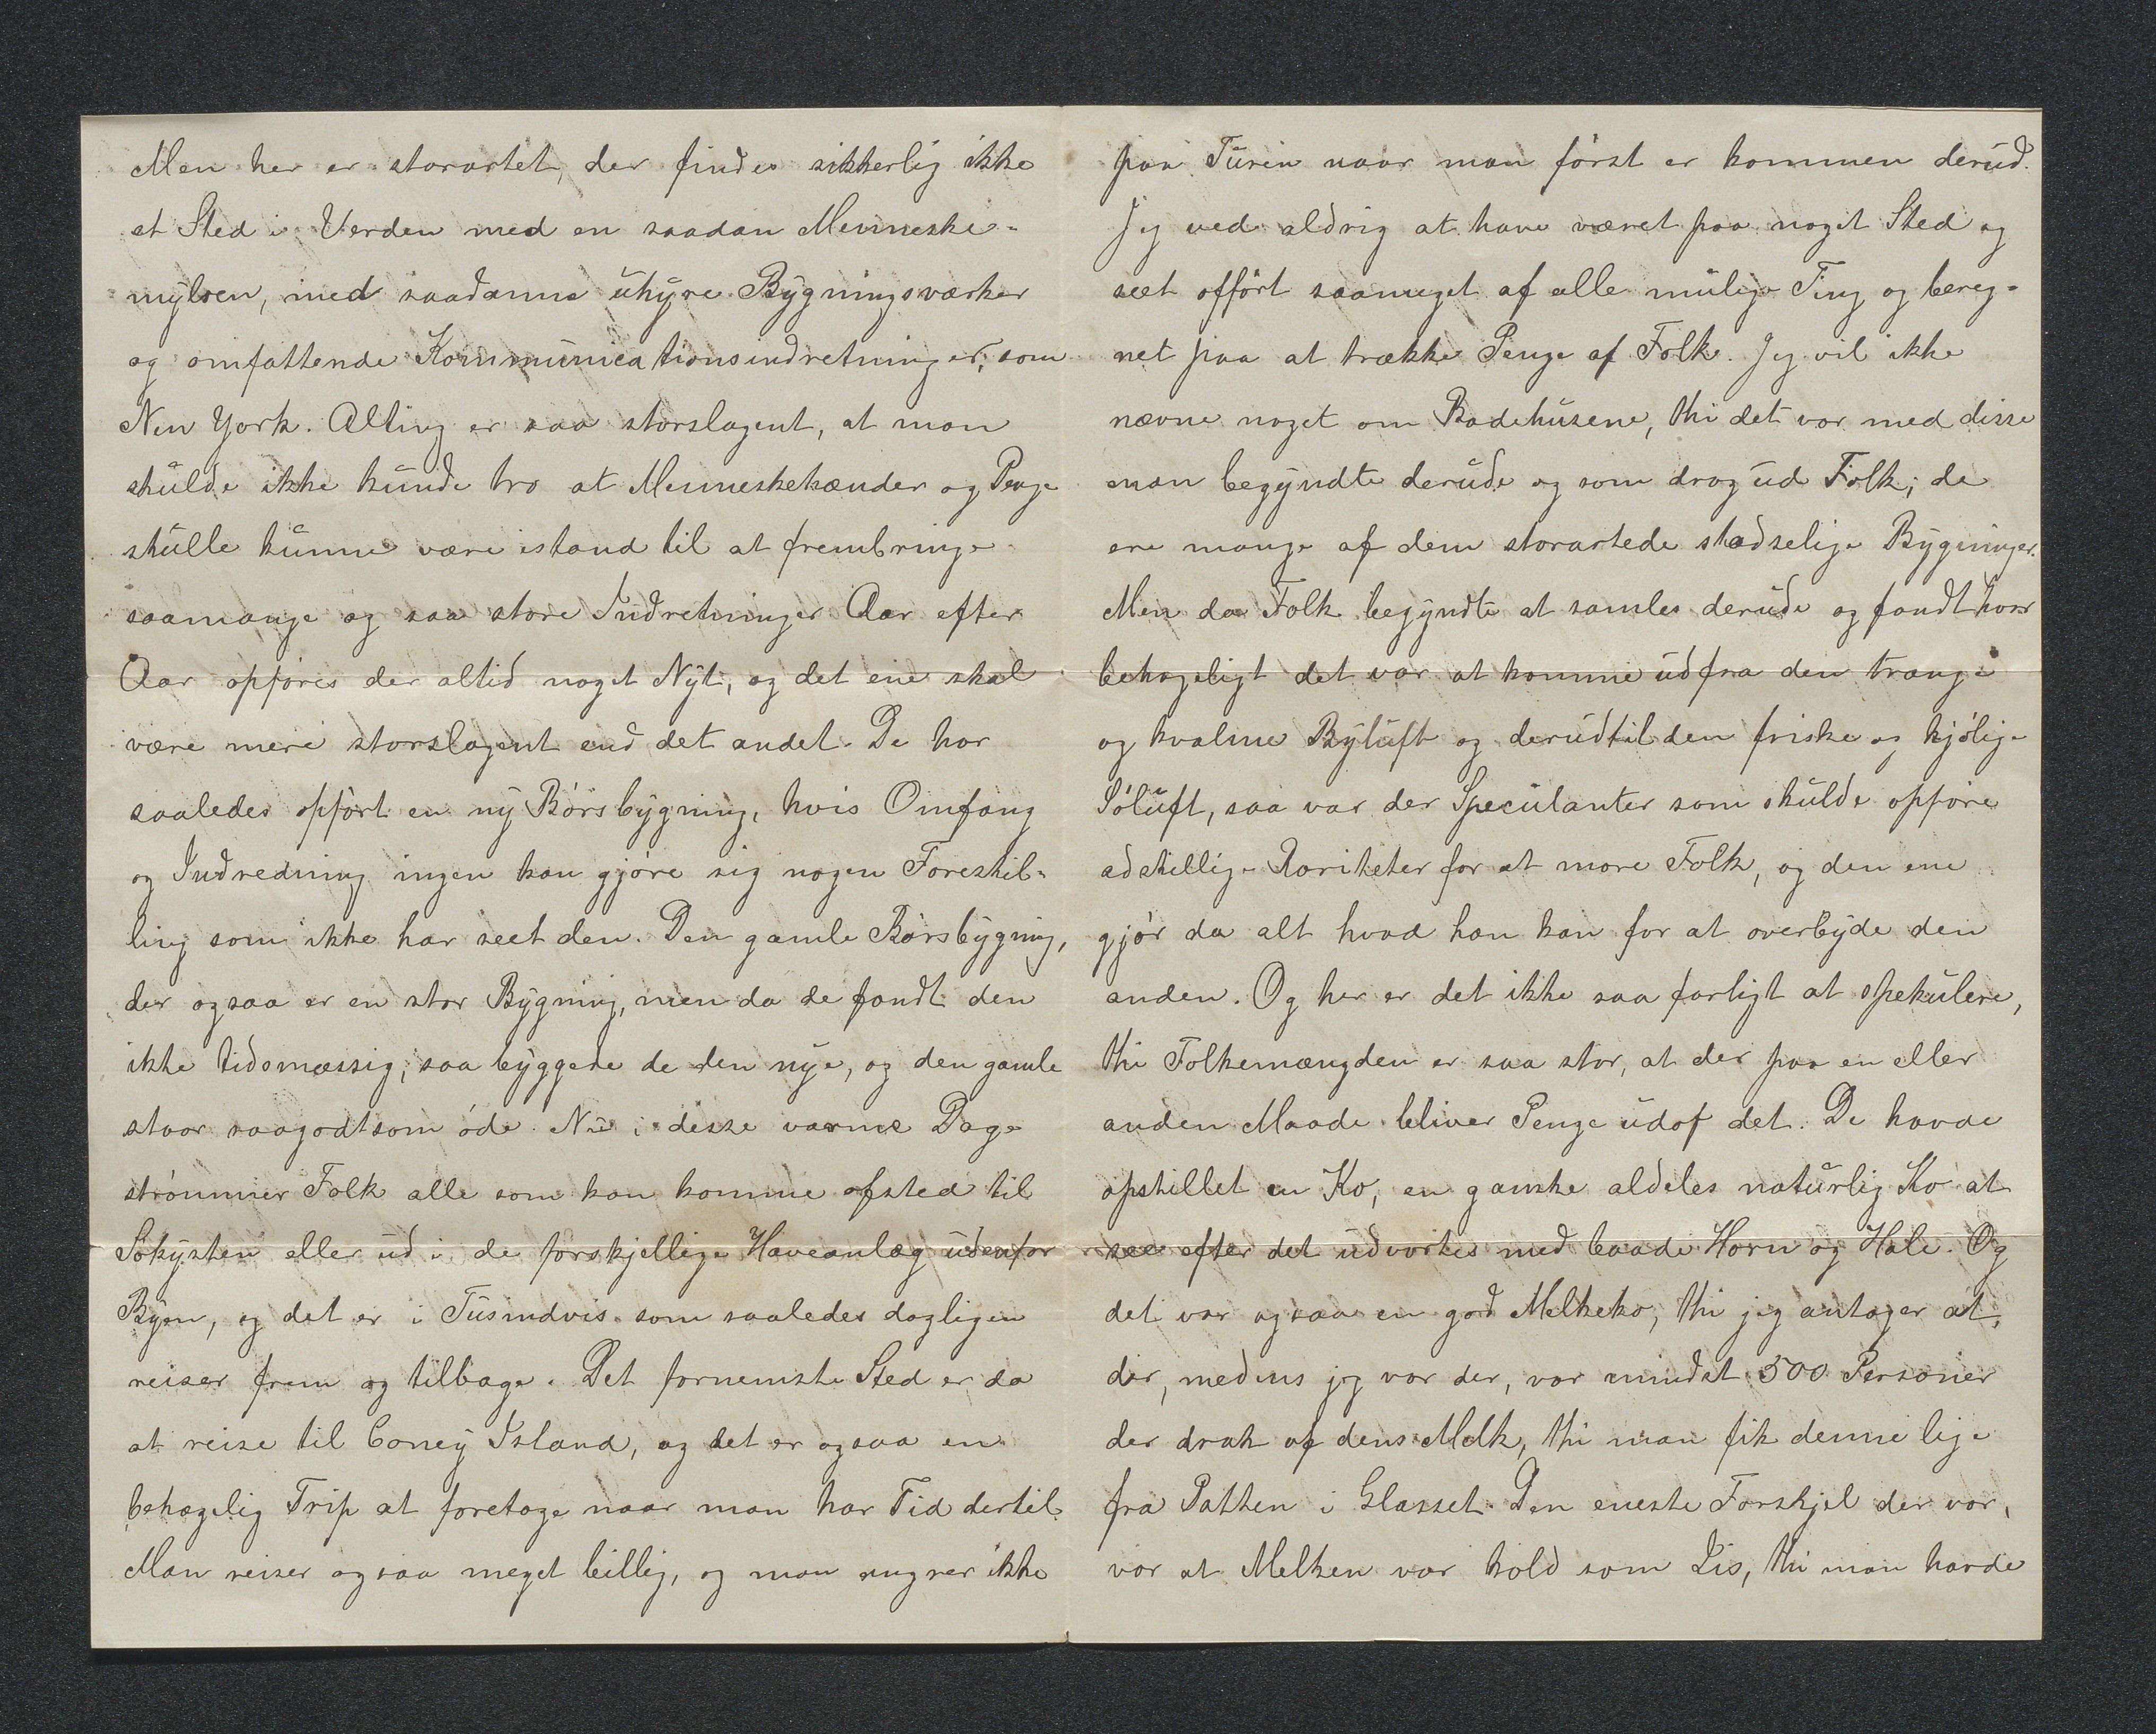 Men her er storartet, der findes sikkerlig ikke
et Sted i Verden med en saadan Menneske-
mylren, med saadanne uhyre Bygningsværker
og omfattende Kommunicationsindretninger, som
New York. Alting er saa storslagent, at man
skulde ikke kunde tro at Menneskehænder og Penge
skulle kunne være istand til at frembringe
saamange og saa store Indretninger Aar efter
Aar opføres der altid noget Nyt, og det ene skal
være mere storslagent end det andet. De har
saaledes opført en ny Börsbygning, hvis Omfang
og Indredning ingen kan gjøre sig nogen Forestil-
ling som ikke har seet den. Den gamle Börsbygning,
der ogsaa er en stor Bygning, men da de fandt den
ikke tidsmæssig, saa byggede de den nye, og den gamle
staar saagodtsom öde. Nu i disse varme Dage
strömmer Folk alle som kan komme afsted til
Sökysten eller ud i de forskjellige Haveanlæg udenfor
Byen, og det er i Tusindvis som saaledes dagligen
reiser frem og tilbage. Det fornemste Sted er da
at reise til Coney Island, og det er ogsaa en
behagelig Trip at foretage naar man har Tid dertil.
Man reiser ogsaa meget billig, og man angrer ikke
paa Turen naar man först er kommen derud.
Jeg ved aldrig at have været paa noget Sted og
seet opfört saameget af alle mulige Ting og bereg-
net paa at trække Penge af Folk. Jeg vil ikke
nævne noget om Badehusene, thi det var med disse
man begyndte derude og som drog ud Folk; de
ere mange af dem storartede stadselige Bygninger.
Men da Folk begyndte at samles derude og fandt hvor
behageligt det var at komme ud fra den trange
og kvalme Byluft og derud til den friske og kjölige
Söluft, saa var der Speculanter som skulde opføre
adskillige Rariteter for at more Folk, og den ene
gjör da alt hvad han kan for at overbyde den
anden. Og her er det ikke saa farligt at spekulere,
thi Folkemængden er saa stor, at der paa en eller
anden Maade bliver Penge udaf det. De havde
opstillet en Ko, en ganske aldeles naturlig Ko at
see efter det udvortes med baade Horn og Hale. Og
det var ogsaa en god Melkeko, thi jeg antager at,
der, medens jeg var der, var mindst 500 Personer
der drak af dens Melk, thi man fik denne lige
fra Patten i Glasset. Den eneste Forskjel der var,
var at Melken var kold som Iis, thi man havde